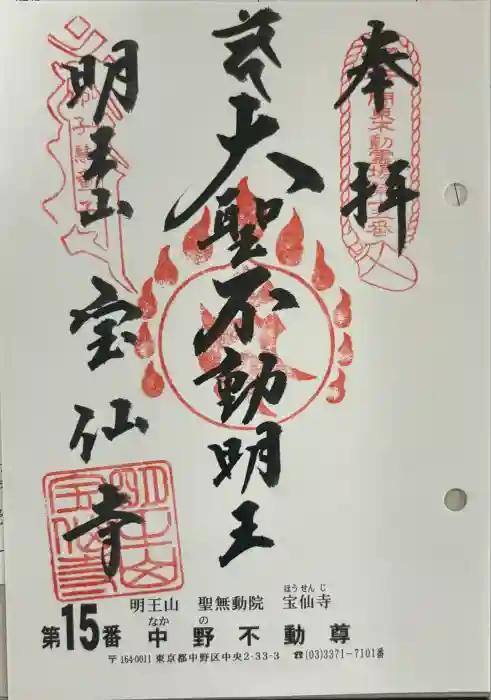 奉拝
大聖不動明王
明王山
宝仙寺
関東不動霊場第十五番
明王山
宝仙寺
明王山 聖無動院 宝仙寺
ほうせんじ
第15番 中野不動尊
なかの
〒164-0011 東京都中野区中央2-33-3 ☎(03)3371-7101番